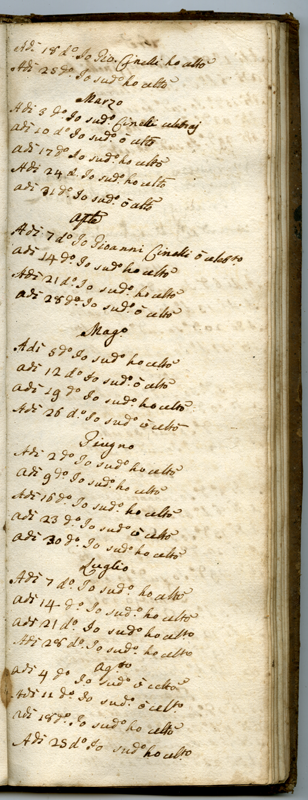 Adi 18 d.o Io Gio: Cinelli ho celto
Adi 25 d.o Io sud.o ho celto
Marzo
Adi 3 d.o Io sud.o Cinelli celebraj
adi 10 d.o Io sud.o ò celto
adi 17 d.o Io sud.o ho celto
Adi 24 d. Io sud.o ho celto
adi 31 d.o Io sud.o ò celto
Aple
Adi 7 d.o Io Giovanni Cinelli ò celebto
adi 14 d.o Io sud.o ho celto
Adi 21 d.o Io sud.o ho celto
adi 28 d.o Io sud.o ò celto
Mago
Adi 5 d.o Io sud.o ho celto
adi 12 d.o Io sud.o ò celto
adi 19 d.o Io sud.o ho celto
Adi 26 d.o Io sud.o ò celto
Giugno
Adi 2 d.o Io sud.o ho celto
adi 9 d.o Io sud.o ho celto
Adi 16 d.o Io sud.o ho celto
adi 23 d.o Io sud.o ò celto
adi 30 d.o Io sud.o ho celto
Luglio
Adi 7 d.o Io sud.o ho celto
adi 14 d.o Io sud.o ho celto
adi 21 d.o Io sud.o ho celto
Adi 28 d.o Io sud.o ho celto
Ago
adi 4 d.o Io sud.o ò celto
Adi 11 d.o Io sud.o ò celto
adi 18 d.o Io sud.o ho celto
Adi 25 d.o Io sud.o ho celto